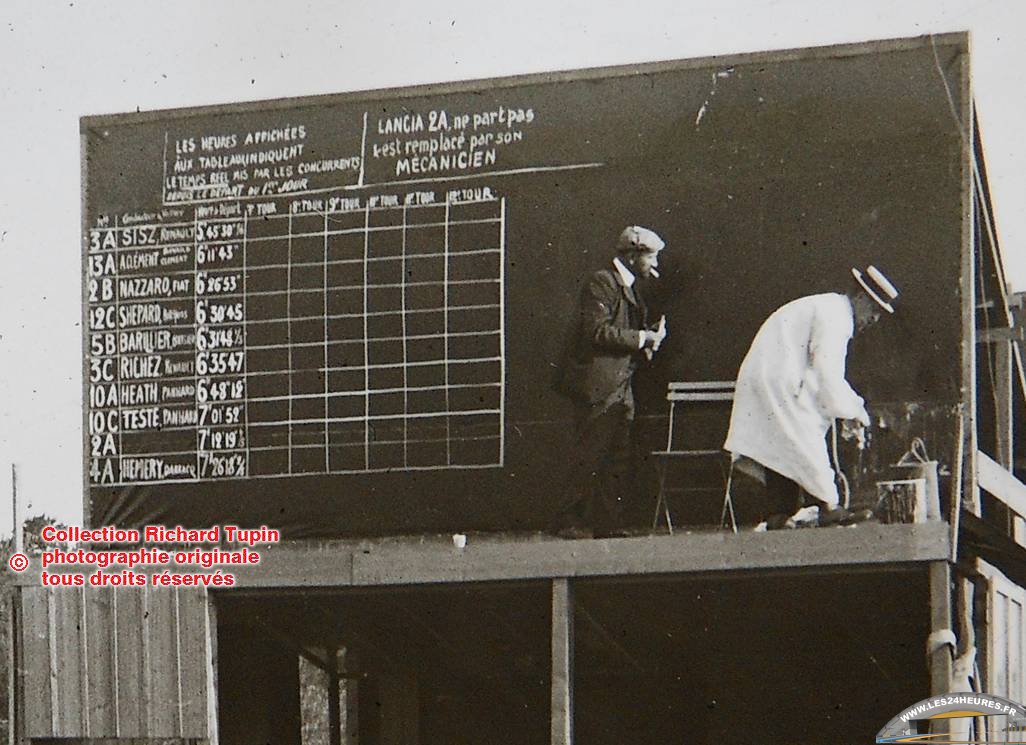 LES HEURES AFFICHÉES
AUX TABLEAUX INDIQUENT
LE TEMPS RÉEL MIS PAR LES CONCURRENTS
DEPUIS LE DÉPART DU 1er JOUR
LANCIA 2A, ne part pas
est remplacé par son
MÉCANICIEN
TOUR 8e TOUR 9e TOUR TOUR TOUR TOUR
3A SISZ, RENAULT 5h 45' 30"
13A A.CLÉMENT CLÉMENT 6h 11' 43"
2B NAZZARO, FIAT 6h 26' 53"
12C SHEPARD, 6h 30' 45
5B BARILLIER, 6h 31'48"
3C RICHEZ, RENAULT 6h 35'47
10A HEATH, PANHARD 6h 48' 19"
10C TESTE, PANHARD 7h 01' 52"
2A 7h 12' 19"
4A HEMERY, DARRACQ 7h 26'18"
Collection Richard Tupin
© photographie originale
tous droits réservés
WWW.LES24HEURES.FR